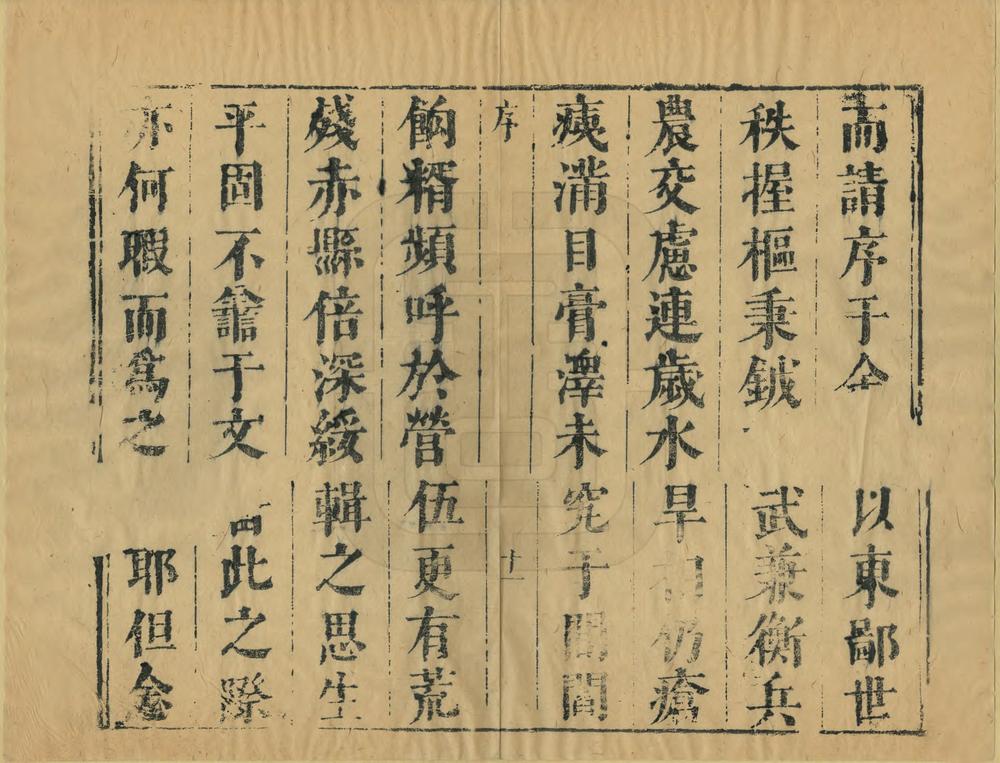 而請序于余以東鄙世
秩握樞秉鉞武兼衡兵
農交慮連歲水旱相仍瘡
痍滿目膏澤未究于閭閻
序十一
餉糈頻呼於營伍更有荒
殘赤縣倍深綏輯之思生
平固不諳于文當此之際
亦何暇而為之耶但念